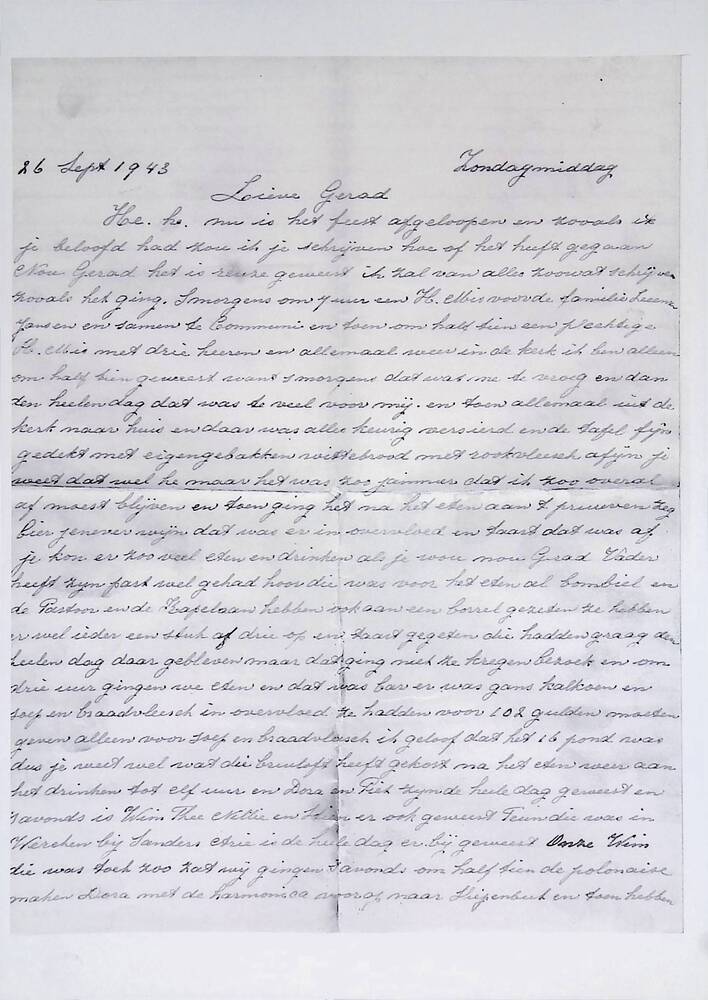 26 Sept 1943 Zondagmiddag
Lieve Gerad
He. h. nu is het feest afgeloopen en zooals ik
je beloofd had zou ik je schrijven hoe of het heeft gegaan
Nou Gerad het is reuze geweest ik zal van alles zoowat schrijven
zooals het ging. Smorgens om 7 uur een H. Mis voor de familie
Jansen en samen te Communi en toen om half tien een plechtige
H. Mis met drie heeren en allemaal weer in de kerk ik ben alleen
om half tien geweest want smorgens dat was me te vroeg en dan
den heelen dag dat was te veel voor mij. en toen allemaal uit de
kerk naar huis en daar was alles keurig versierd en de tafel fijn
gedekt met eigengebakken wittebrood met rookvleesch afijn je
weet dat wel he maar het was zoo jammer dat ik zoo overal
af moest blijven en toen ging het na het eten aan 't pruuven zeg
bier jenever wijn dat was er in overvloed en taart dat was af
je kon er zoo veel eten en drinken als je wou nou Gerad Vader
heeft zyn part wel gehad hoor die was voor het eten al bombiel en
de Pastoor en de Kapelaan hebben ook aan een borrel gezeten ze hebben
er wel ieder een stuk af drie op en taart gegeten die hadden graag den
heelen dag daar gebleven maar dat ging niet ze kregen bezoek en om
drie uur gingen we eten en dat was bar er was gans kalkoen en
soep en braadvleesch in overvloed ze hadden voor 102 gulden moeten
geven alleen voor soep en braadvleesch ik geloof dat het 16 pond was
dus je weet wel wat die bruiloft heeft gekost na het eten weer aan
het drinken tot elf uur en Dora en Piet zyn de heele dag geweest en
savonds is Wim Thee Nellie en Stien er ook geweest Teun die was in
Werchen bij Sanders Arie is de heele dag er bij geweest Onze Wim
die was toch zoo zat wij gingen savonds om half tien de polonaise
maken Dora met de harmonica voorop naar en toen hebben